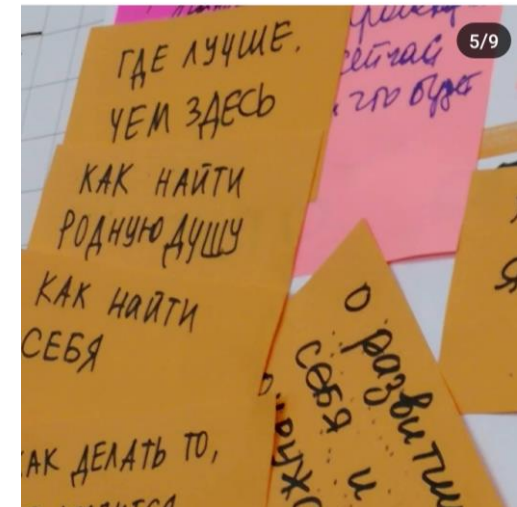 5/9
ГДЕ ЛУЧШЕ,
ЧЕМ ЗДЕСЬ
сейчас
что будет
КАК НАЙТИ
РОДНУЮ ДУШУ
КАК НАЙТИ
СЕБЯ
КАК ДЕЛАТЬ ТО,
О развитии
СЕБЯ и